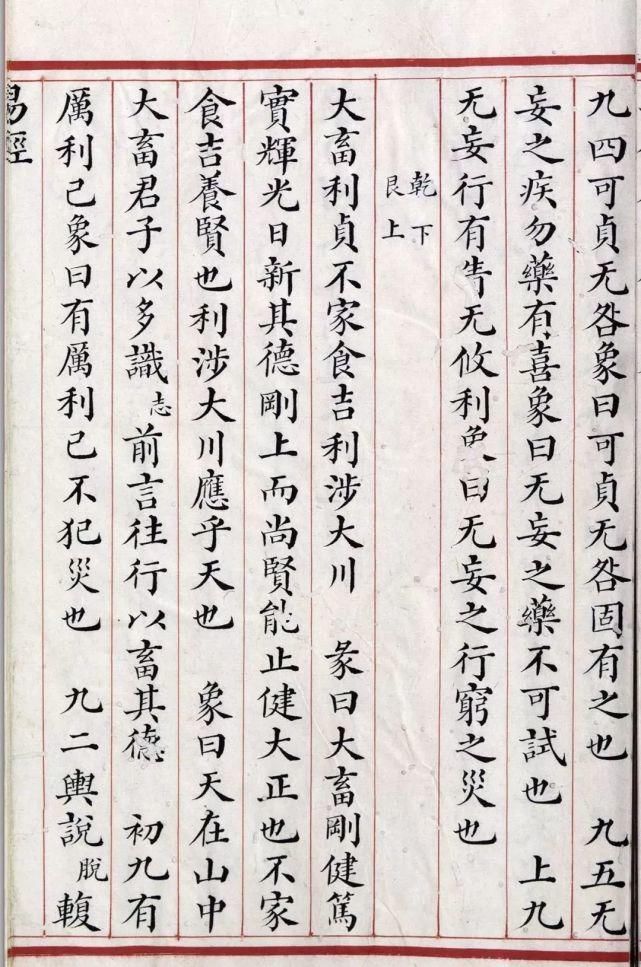 九四可貞无咎象曰可貞无咎固有之也　九五无
妄之疾勿藥有喜象曰无妄之藥不可試也　上九
无妄行有眚无攸利象曰无妄之行窮之災也
乾下
艮上
大畜利貞不家食吉利涉大川　彖曰大畜剛健篤
實輝光日新其德剛上而尚賢能止健大正也不家
食吉養賢也利涉大川應乎天也　象曰天在山中
大畜君子以多識志前言往行以畜其德　初九有
厲利已象曰有厲利已不犯災也　九二輿說脫輹
易經